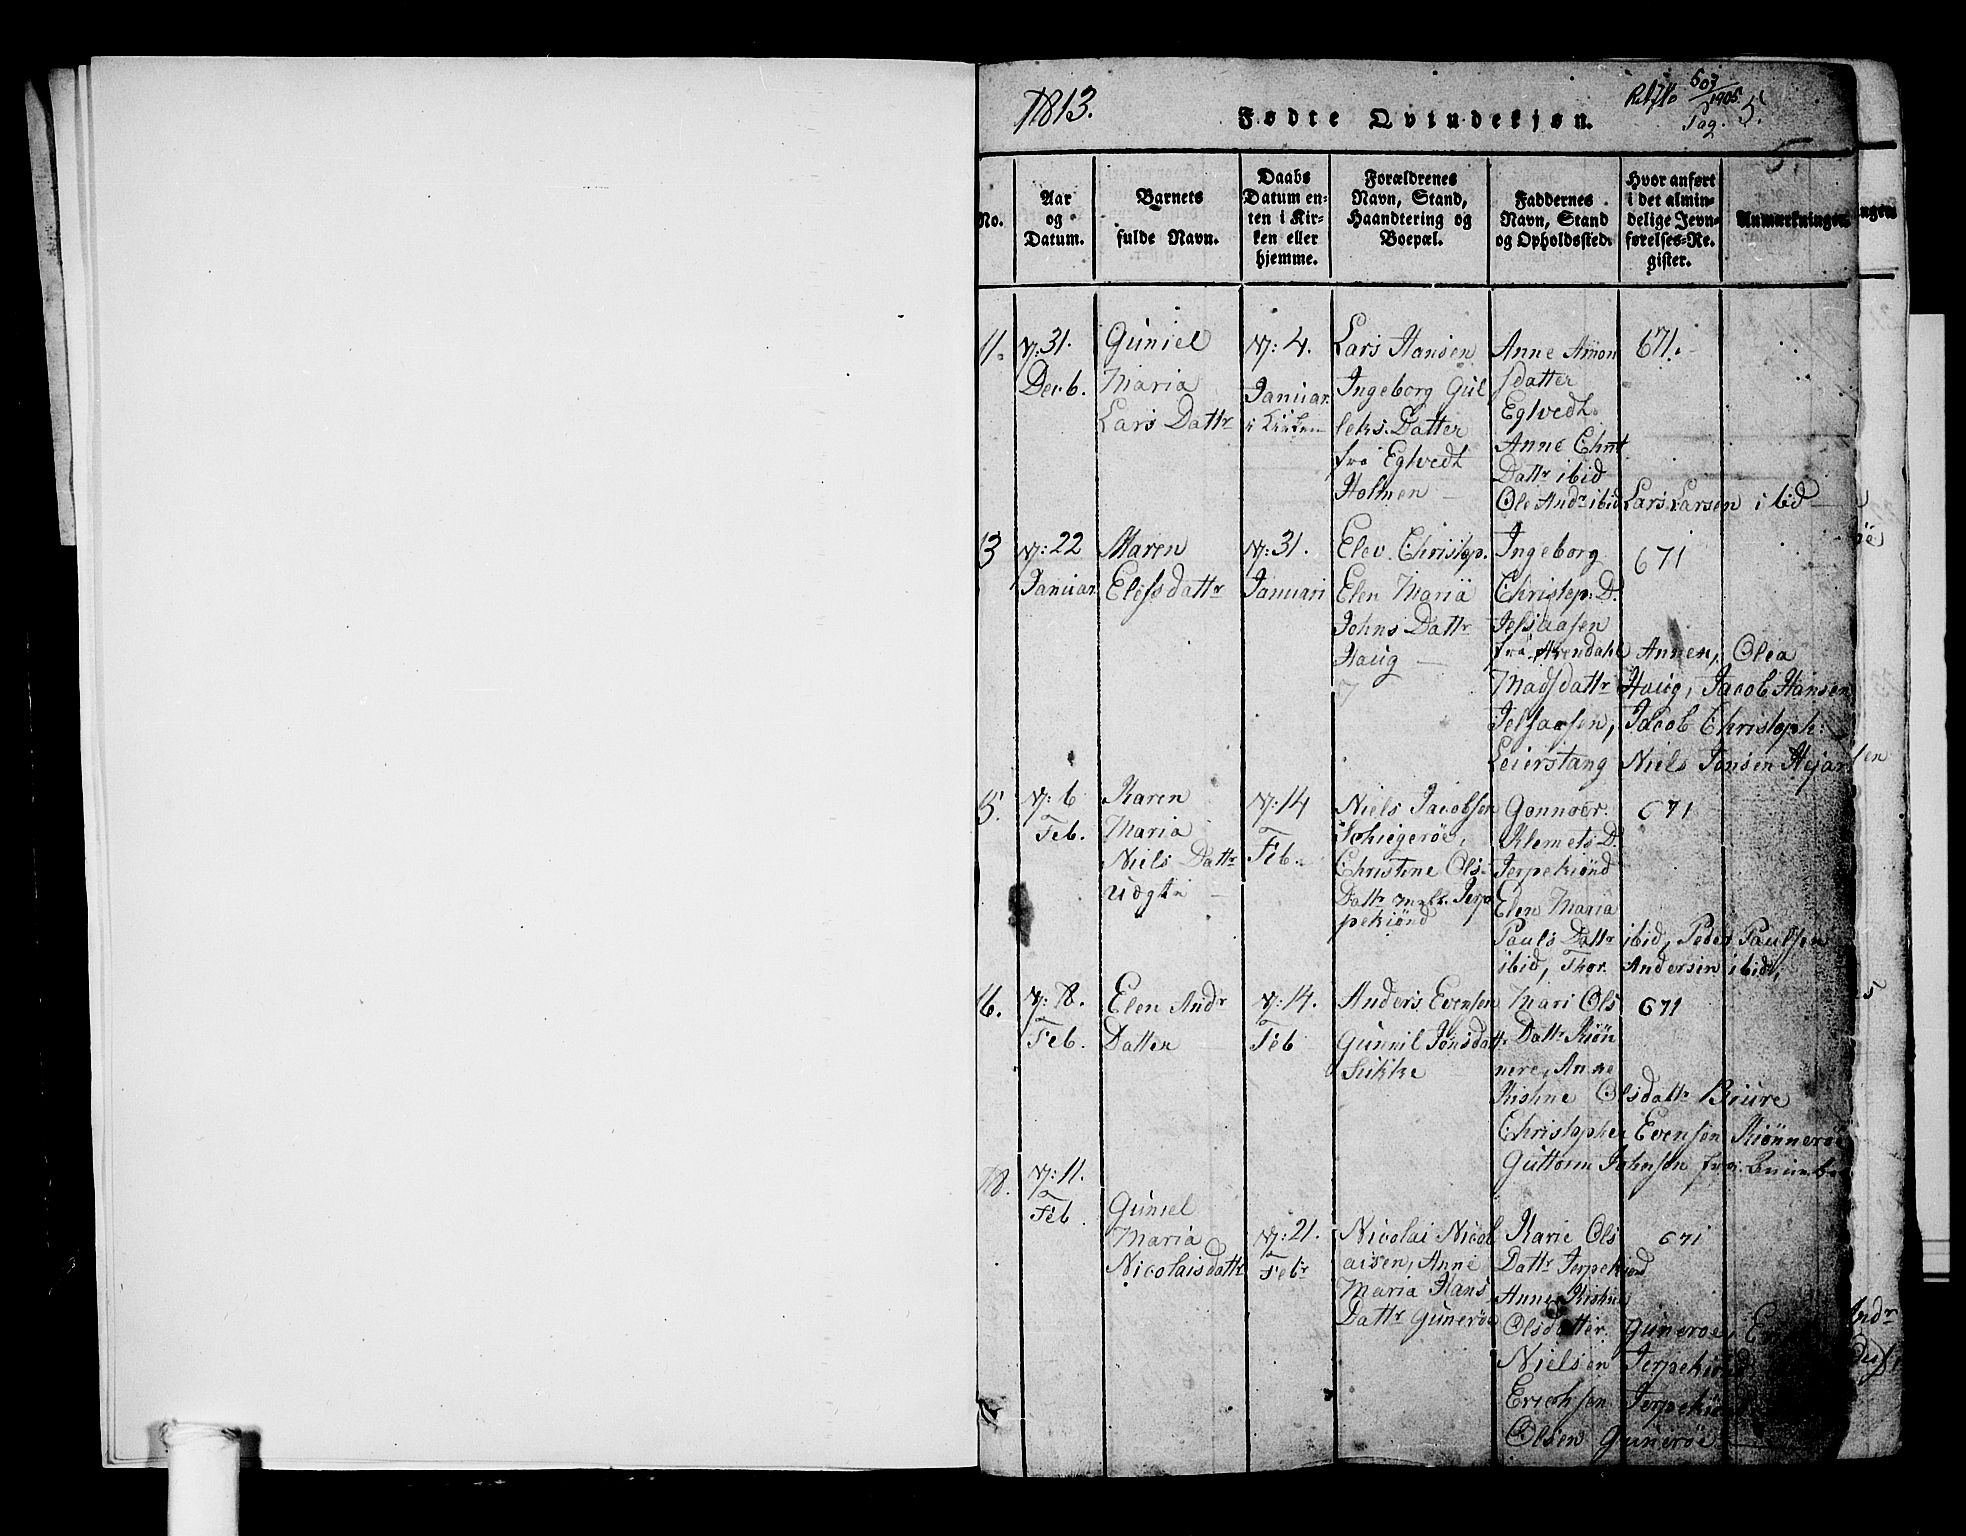 1813.
Fødte Qvindekjøn.
507/1905
Pag. 5.
5.
No.
Aar
og
Datum.
Barnets
fulde Navn.
Daabs
Datum en-
ten i Kir-
ken eller
hjemme.
Forældrenes
Navn, Stand,
Haandtering og
Boepæl.
Faddernes
Navn, Stand
og Opholdssted.
Hvor anført
i det almin-
delige Jevn-
førelses-Re-
gister.
Anmærkninger
11.
N: 31.
Decb.
Guniel
Maria
Lars Dattr
N: 4.
Januar.
i Kirken
Lars Hansen
Ingeborg Gul
leks. Datter
fra Egtvedt
Holmen
Anne Amon
sdatter
Egtvedt.
Anne Chrst.
Dattr ibid
Ole Andr ibid Lars Larsen ibid
671.
13
N: 22
Januar.
Maren
Elefsdattr
N: 31.
Januari
Elev. Christop.
Elen Maria
Johns Dattr
Haug
Ingeborg
Christop: D.
Jelsaasen
fra Arendahl Annex, Olea
Madsdattr Haug, Jacob Hansen
Jelsaasen, Jacob Christoph:
Leierstang Niels Jonsen
671
15.
N: 6
Feb.
Karen
Maria
Niels Dattr
uægte
N: 14
Feb.
Niels Jacobsen
Schiegerøe,
Christine Ols-
Dattr Jerp
pekiønd
Gonnoer.
Klemets D.
Jerpekiønd
Elen Maria
Pauls Dattr ibid, Peder Paulsen
ibid, Thor. Andersen ibid,
671
16.
N: 8.
Feb.
Elen Andr
Datter
N: 14.
Feb
Anders Evensen
Gunnil Jonsdattr
Sikke
Mari Ols
Dattr Kiøn
nere, Anne
Kistine Olsdattr Biure
Christopher Evensen Kiønnerøe
Guttorm Johnsen fra
671
18.
N: 11.
Feb
Guniel
Maria
Nicolaisdattr
N: 21.
Febr
Nicolai Nicol
aisen, Anne
Maria Hans
Dattr Gunerøe
Karie Ols
Dattr Jerpekiønd
Anne Kistine
Olsdatter. Gunerøe,
Nielsen Jerpekiønd
Erichsen Jerpekiønd
Olsen Gunerøe
671